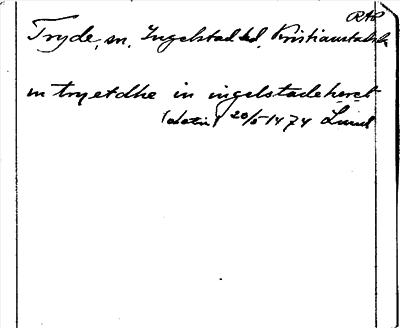 RAP
Tryde, sn, Ingelstad hd, Kristianstads l
in tryetdhe in ingelstadeheret
(latin) 20/5 1474 Lund